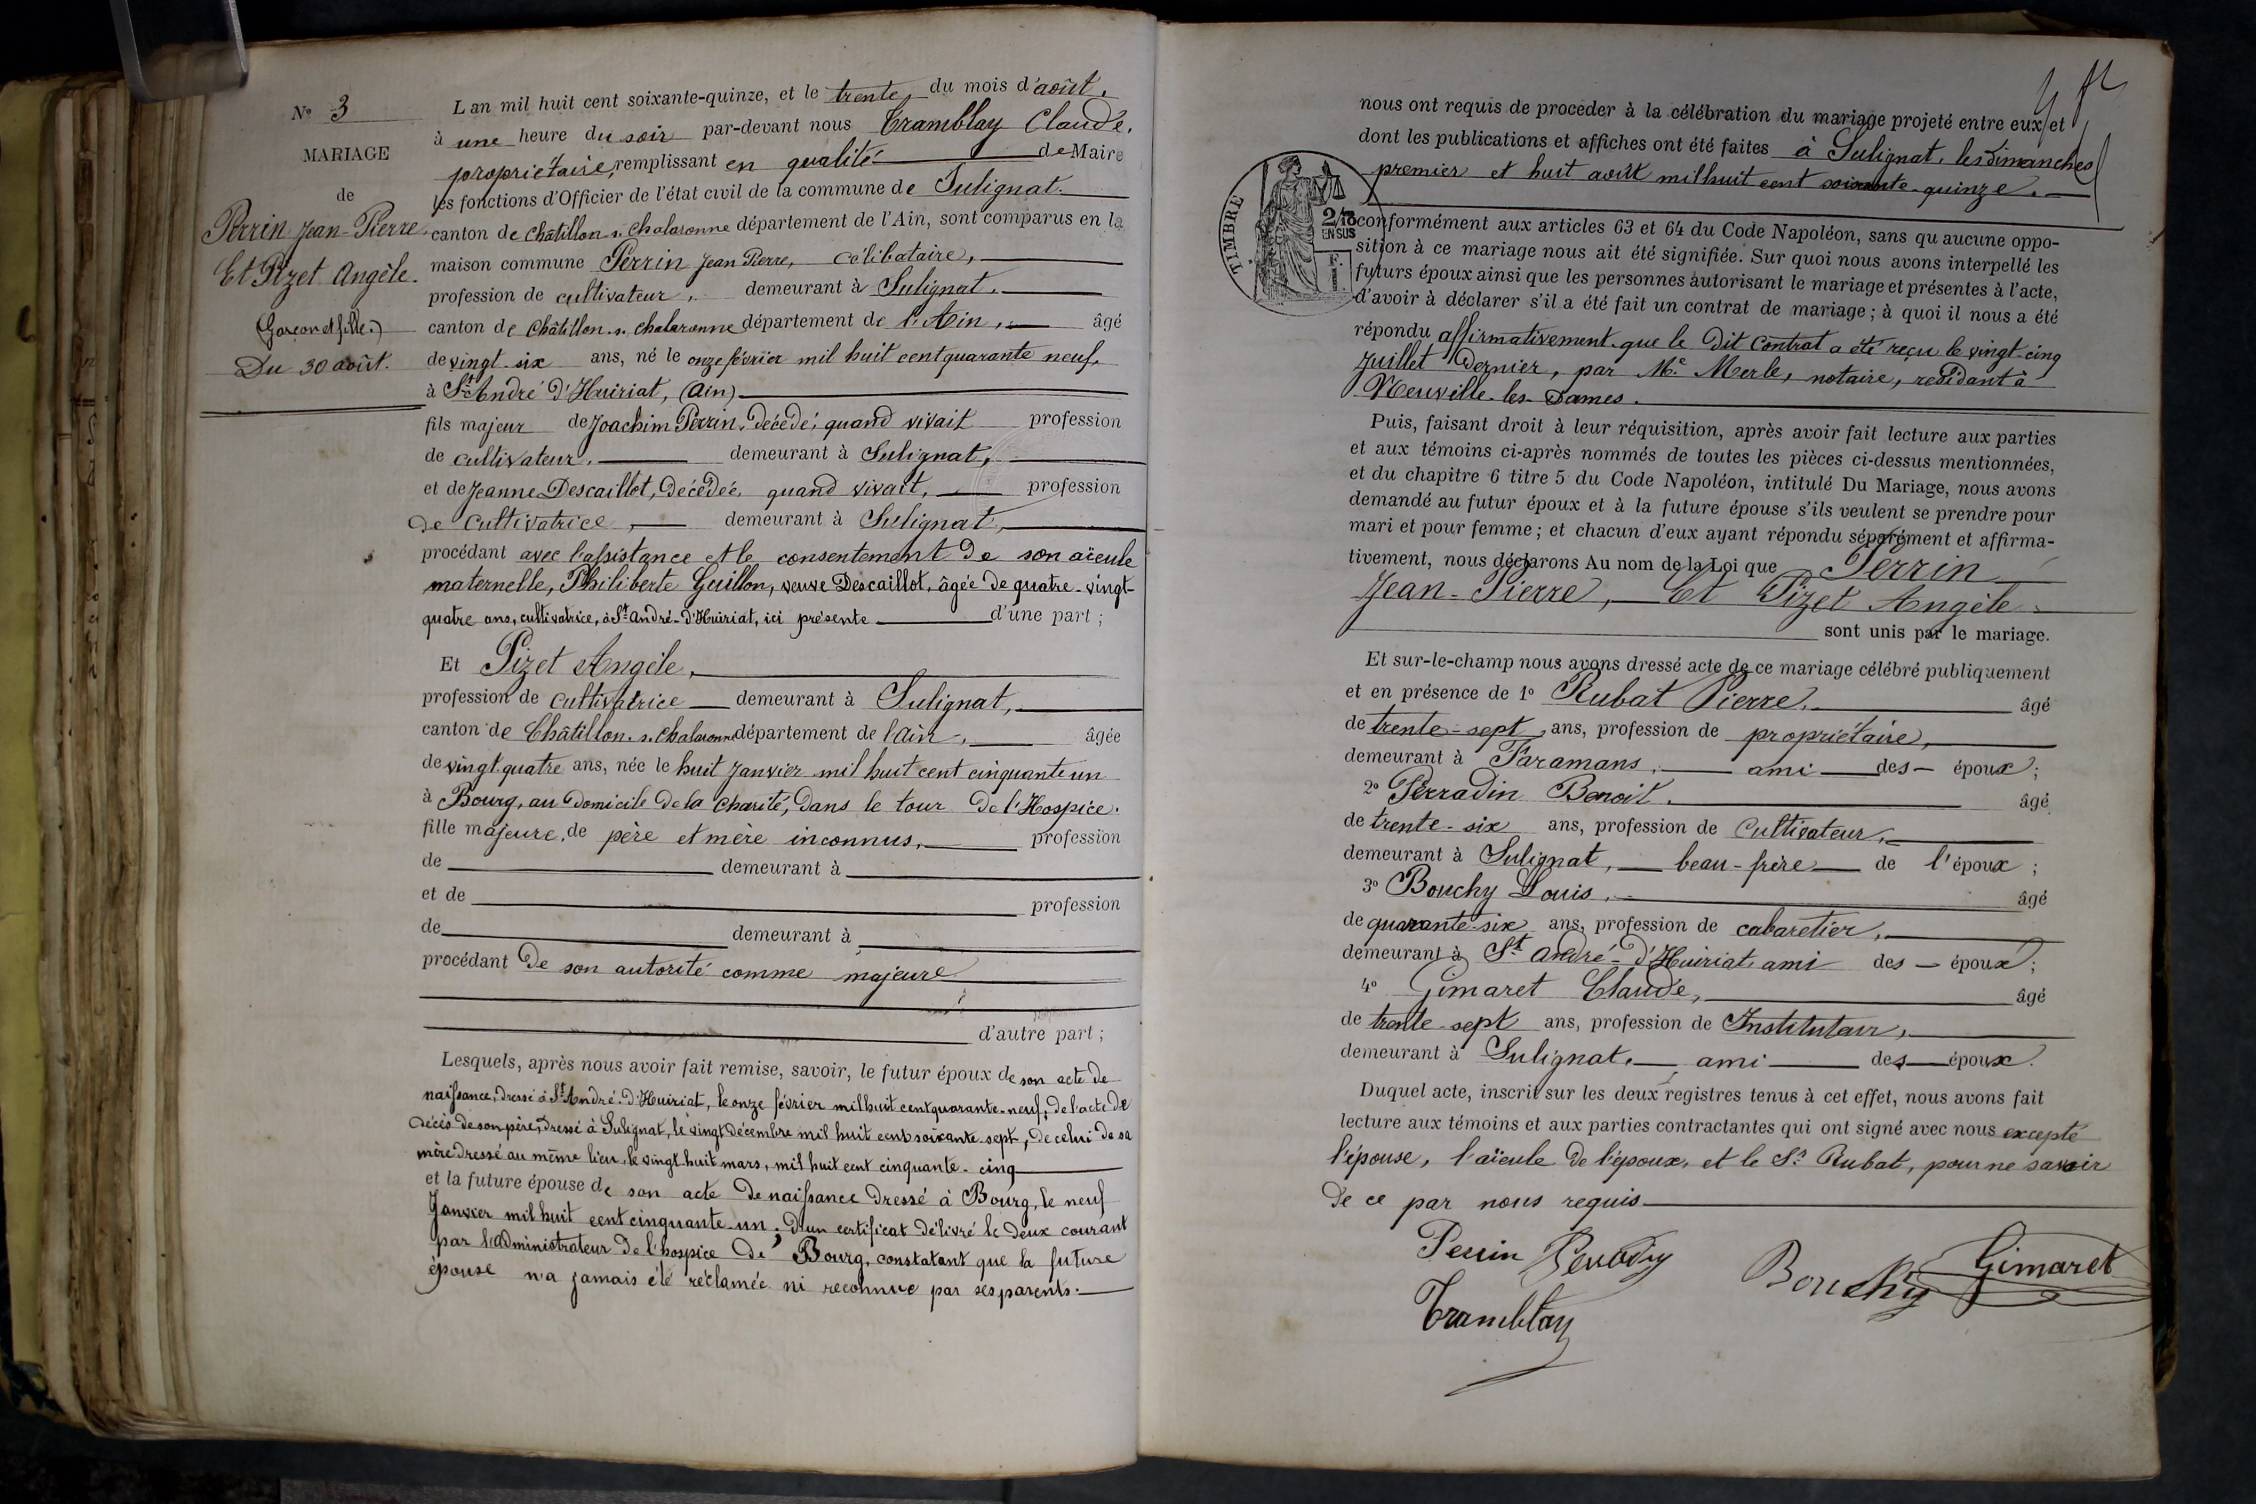 N° 3
MARIAGE
de
Perrin Jean-Pierre
Et Pizet Angèle.
(Garçon et fille.)
Du 30 août.
L an mil huit cent soixante-quinze, et le trente du mois d'août.
à une heure du soir par-devant nous Tramblay Claude,
propriétaire, remplissant en qualité de Maire
les fonctions d'Officier de l'état civil de la commune de Sulignat.
canton de Châtillon s. Chalaronne département de l'Ain, sont comparus en la
maison commune Perrin Jean Pierre, célibataire,
profession de cultivateur, demeurant à Sulignat.
canton de Châtillon s. Chalaronne département de l'Ain, âgé
de vingt six ans, né le onze février mil huit cent quarante neuf,
à St André d'Huiriat, (Ain)
fils majeur de Joachim Perrin, décédé, quand vivait profession
de cultivateur, demeurant à Sulignat,
et de Jeanne Descaillot, décédée, quand vivait, profession
de cultivatrice, demeurant à Sulignat,
procédant avec l'assistance et le consentement de son aïeule
maternelle, Philiberte Guillon, veuve Descaillot, âgée de quatre-vingt-
quatre ans, cultivatrice, à St André-d'Huiriat, ici présente d'une part ;
Et Pizet Angèle,
profession de cultivatrice demeurant à Sulignat,
canton de Châtillon s. Chalaronne département de l'Ain, âgée
de vingt quatre ans, née le huit Janvier mil huit cent cinquante un
à Bourg, au domicile de la charité, dans le tour de l'Hospice.
fille majeure, de père et mère inconnus, profession
de demeurant à
et de profession
de demeurant à
procédant de son autorité comme majeure
d'autre part ;
Lesquels, après nous avoir fait remise, savoir, le futur époux de son acte de
naissance, dressé à St André-d'Huiriat, le onze février mil huit cent quarante-neuf, de l'acte de
décès de son père, dressé à Sulignat, le vingt décembre mil huit cent soixante-sept, de celui de sa
mère dressé au même lieu, le vingt huit mars, mil huit cent cinquante-cinq
et la future épouse de son acte de naissance dressé à Bourg, le neuf
Janvier mil huit cent cinquante-un ; d'un certificat délivré le deux courant
par l'administrateur de l'hospice de Bourg, constatant que la future
épouse n'a jamais été réclamée ni reconnue par ses parents.
nous ont requis de procéder à la célébration du mariage projeté entre eux et
dont les publications et affiches ont été faites à Sulignat, les dimanches
premier et huit août mil huit cent soixante-quinze.
TIMBRE
2/10
EN SUS
conformément aux articles 63 et 64 du Code Napoléon, sans qu aucune oppo-
sition à ce mariage nous ait été signifiée. Sur quoi nous avons interpellé les
futurs époux ainsi que les personnes autorisant le mariage et présentes à l'acte,
d'avoir à déclarer s'il a été fait un contrat de mariage ; à quoi il nous a été
répondu affirmativement que le dit contrat a été reçu le vingt-cinq
Juillet dernier, par Me Merle, notaire, residant à
Neuville-les-Dames.
Puis, faisant droit à leur réquisition, après avoir fait lecture aux parties
et aux témoins ci-après nommés de toutes les pièces ci-dessus mentionnées,
et du chapitre 6 titre 5 du Code Napoléon, intitulé Du Mariage, nous avons
demandé au futur époux et à la future épouse s'ils veulent se prendre pour
mari et pour femme ; et chacun d'eux ayant répondu séparément et affirma-
tivement, nous déclarons Au nom de la Loi que Perrin
Jean-Pierre, Et Pizet Angèle
sont unis par le mariage.
Et sur-le-champ nous avons dressé acte de ce mariage célébré publiquement
et en présence de 1° Rubat Pierre, âgé
de trente-sept ans, profession de propriétaire,
demeurant à Faramans, ami des époux ;
2° Perradin Benoit. âgé
de trente-six ans, profession de cultivateur,
demeurant à Sulignat, beau-frère de l'époux ;
3° Bouchy Louis, âgé
de quarante-six ans, profession de cabaretier,
demeurant à St André-d'Huiriat, ami des époux ;
4° Gimaret Claude, âgé
de trente-sept ans, profession de Instituteur,
demeurant à Sulignat. ami des époux.
Duquel acte, inscrit sur les deux registres tenus à cet effet, nous avons fait
lecture aux témoins et aux parties contractantes qui ont signé avec nous excepté
l'épouse, l'aïeule de l'époux, et le Sr Rubat, pour ne savoir
de ce par nous requis
Perrin Bouchy Gimaret
Tramblay